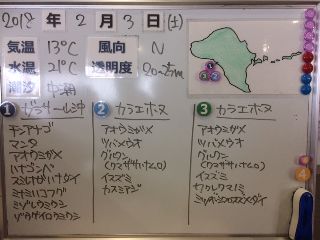 2018年2月3日(土)
気温 13℃ 風向 N
水温 21℃ 透明度 20~25m
潮汐 中潮
① 沖
② カラエボヌ
③ カラエボヌ
チンアナゴ
マンタ
アオウミガメ
ハナゴンベ
スミレナガハナダイ
ミナミハコフグ
ミゾレウミウシ
ゾウゲイロウミウシ
アオウミガメ
ツバメウオ
グルクン
(クマザサハナムロ)
イスズミ
カスミアジ
アオウミガメ
ツバメウオ
グルクン
(クマザサハナムロ)
イスズミ
1
2
3
4